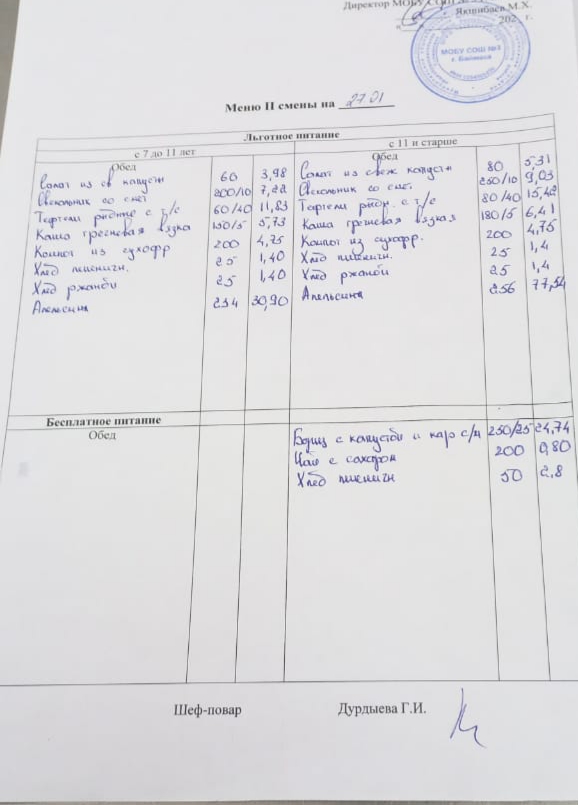 Директор МОБУ СОШ
Якшибаев М.Х.
202 г.
МОБУ СОШ №3
Меню II смены на 27.01
Льготное питание
с 7 до 11 лет с 11 и старше
Обед Обед
Салат из св капусты 60 3,98 Салат из свеж капусты 80 5.31
Свекольник со смет 200/10 7,22 Свекольник со смет. 250/10 9,03
Тефтели рыбные с т/с 60/40 11,83 Тефтели рыбн. с т/с 80/40 15,42
Каша гречневая вязка 150/5 5,73 Каша гречневая вязкая 180/5 6,41
Компот из сухофр 200 4,75 Компот из сухофр. 200 4,75
Хлеб пшеничн. 25 1,40 Хлеб пшеничн. 25 1,4
Хлеб ржаной 25 1,40 Хлеб ржаной 25 1,4
Апельсин 234 30,90 Апельсин 256
Бесплатное питание
Обед
Борщ с капустой и кар с/м 250/25 24,74
Чай с сахаром 200 0,80
Хлеб пшеничн 50 2,8
Шеф-повар Дурдыева Г.И.